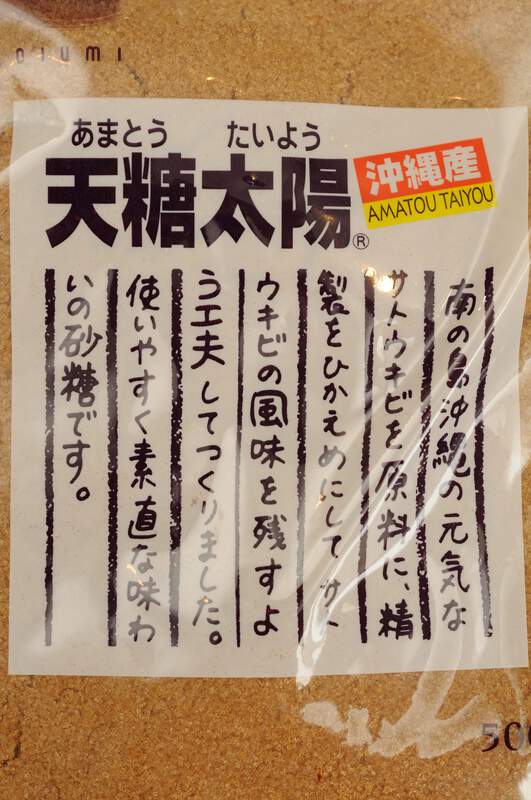 OIUMI
あまとう たいよう
天糖太陽®
沖縄産
AMATOU TAIYOU
南の島沖縄の元気な
サトウキビを原料に、精
製をひかえめにして サト
ウキビの風味を残すよ
う工夫してつくりました。
使いやすく素直な味わ
いの砂糖です。
500